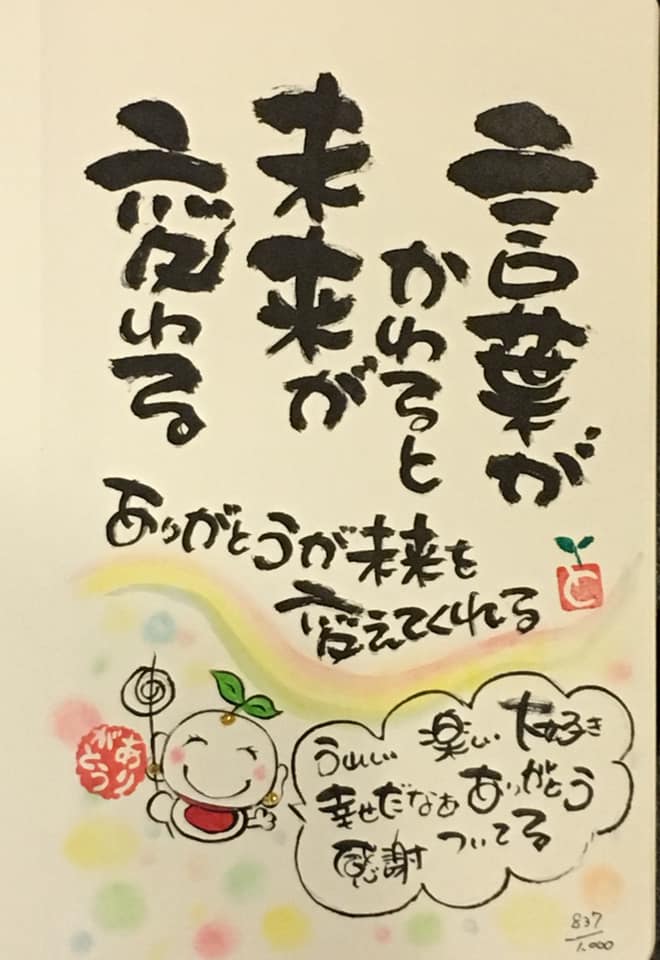 言葉が
かわると
未来が
変わる
ありがとうが未来を
変えてくれる
と
ありがとう
うれしい 楽しい 大好き
幸せだなぁ ありがとう
感謝 ついてる
837
1,000